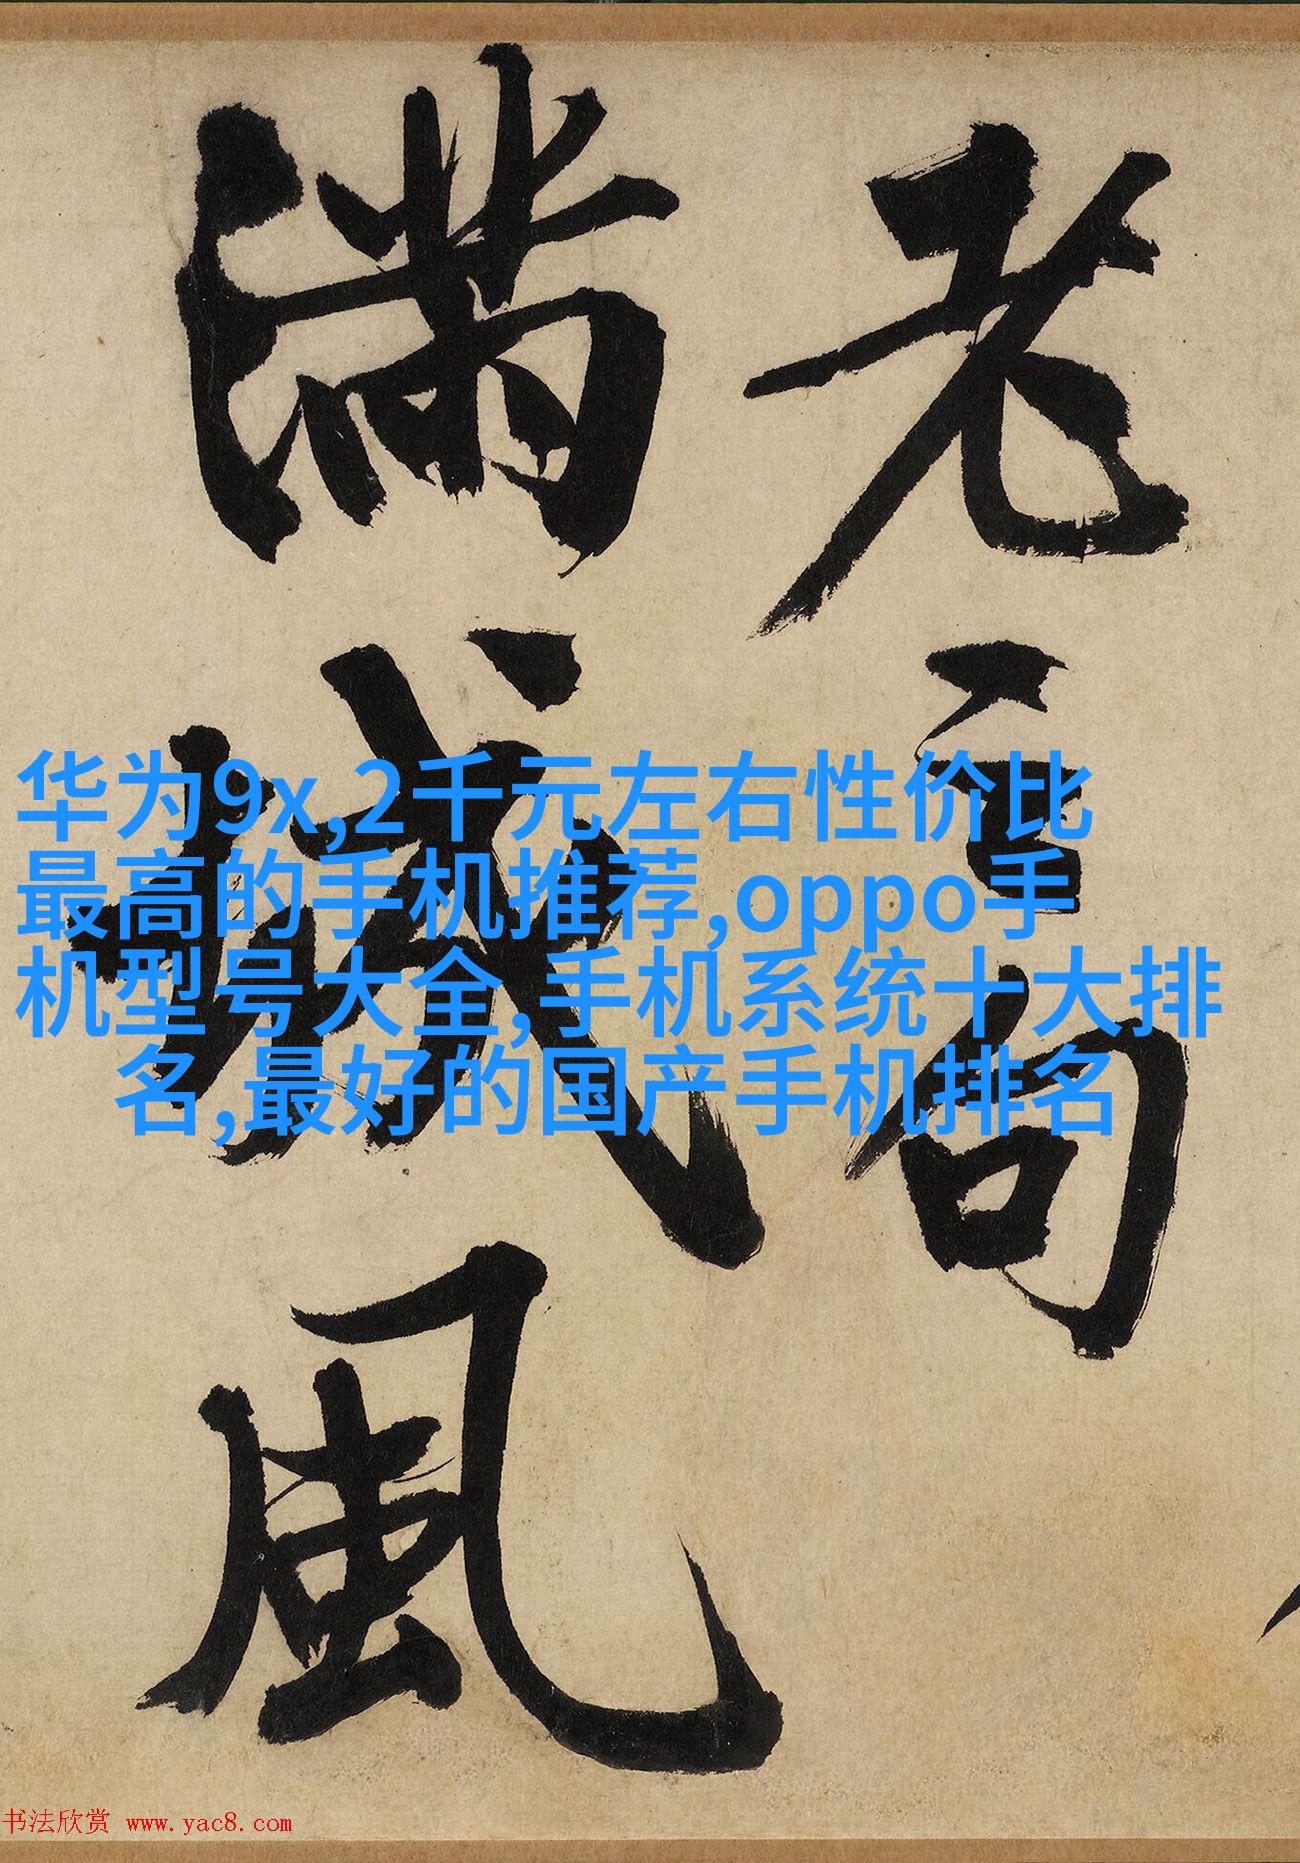 老句
滿城風
华为9x,2千元左右性价比
最高的手机推荐,oppo手
机型号大全,手机系统十大排
名,最好的国产手机排名
书法欣赏 www.yac8.com